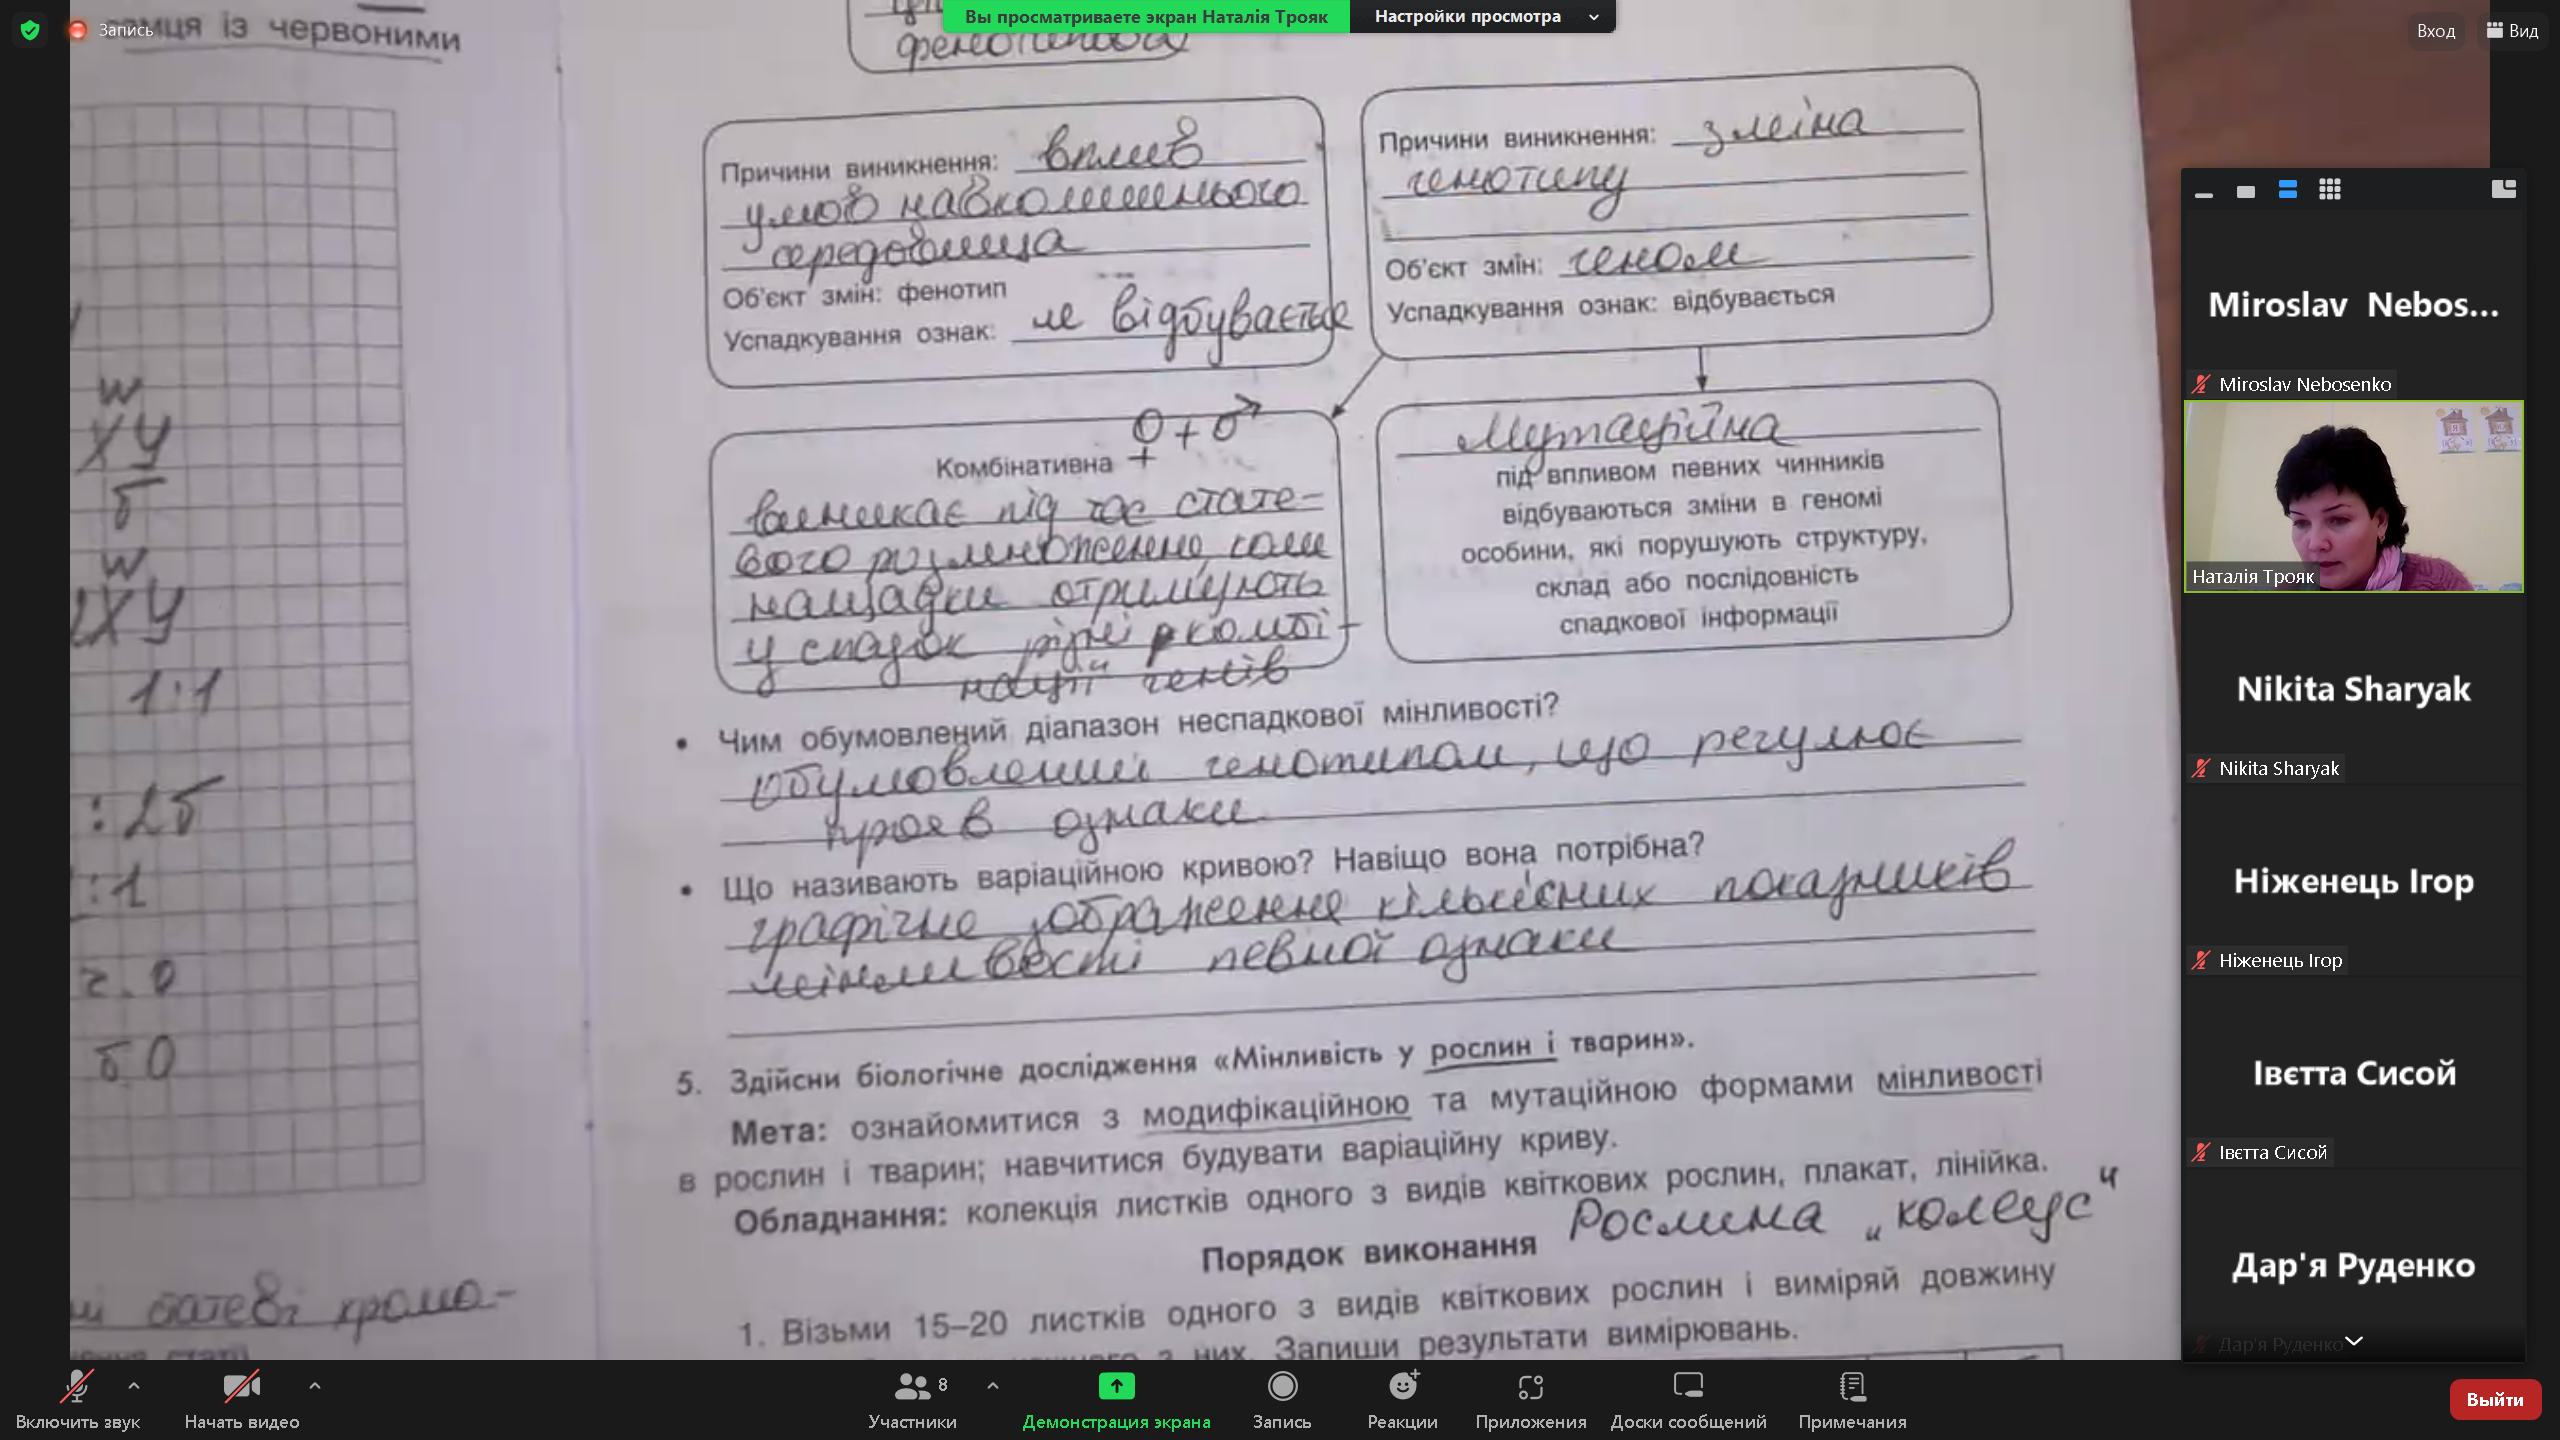 Вы просматриваете экран Наталія Трояк
Настройки просмотра
Запись
Вход
Вид
самця із червоними
фенотипова
Причини виникнення: вплив
умов навколишнього
середовища
Об'єкт змін: фенотип
Успадкування ознак: не відбувається
Причини виникнення: зміна
генотипу
Об'єкт змін: геном
Успадкування ознак: відбувається
♀ + ♂
Комбінативна
виникає під час стате-
вого розмноження, коли
нащадки отримують
у спадок різні комбі-
нації генів
Мутаційна
під впливом певних чинників
відбуваються зміни в геномі
особини, які порушують структуру,
склад або послідовність
спадкової інформації
• Чим обумовлений діапазон неспадкової мінливості?
обумовлений генотипом, що регулює
прояв ознаки
• Що називають варіаційною кривою? Навіщо вона потрібна?
графічне зображення кількісних показників
мінливості певної ознаки
5. Здійсни біологічне дослідження «Мінливість у рослин і тварин».
Мета: ознайомитися з модифікаційною та мутаційною формами мінливості
в рослин і тварин; навчитися будувати варіаційну криву.
Обладнання: колекція листків одного з видів квіткових рослин, плакат, лінійка.
Порядок виконання Рослина „колеус"
1. Візьми 15–20 листків одного з видів квіткових рослин і виміряй довжину
з них. Запиши результати вимірювань.
w
XY
б
w
XY
1:1
:2б
:1
г. о
б О
статеві хромо-
статі
Miroslav Nebos...
Miroslav Nebosenko
Наталія Трояк
Nikita Sharyak
Nikita Sharyak
Ніженець Ігор
Ніженець Ігор
Івєтта Сисой
Івєтта Сисой
Дар'я Руденко
Дар'я Руденко
Включить звук
Начать видео
Участники
8
Демонстрация экрана
Запись
Реакции
Приложения
Доски сообщений
Примечания
Выйти